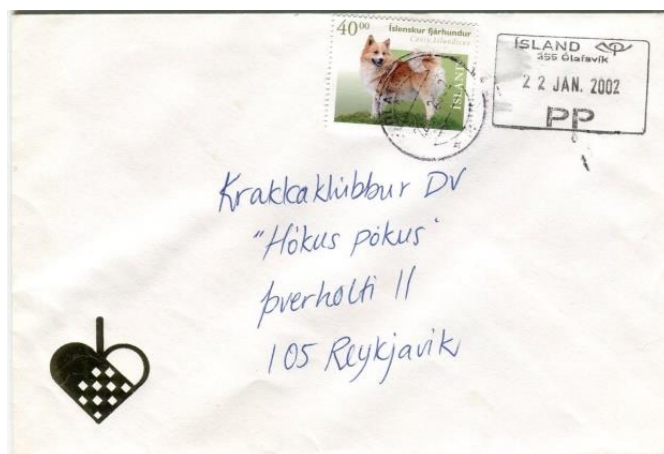 40⁰⁰ Íslenskur fjárhundur
Canis Islandicus
ÍSLAND
ÍSLAND
355 Ólafsvík
22 JAN. 2002
PP
Krakkaklúbbur DV
"Hókus pókus"
Þverholti 11
105 Reykjavik